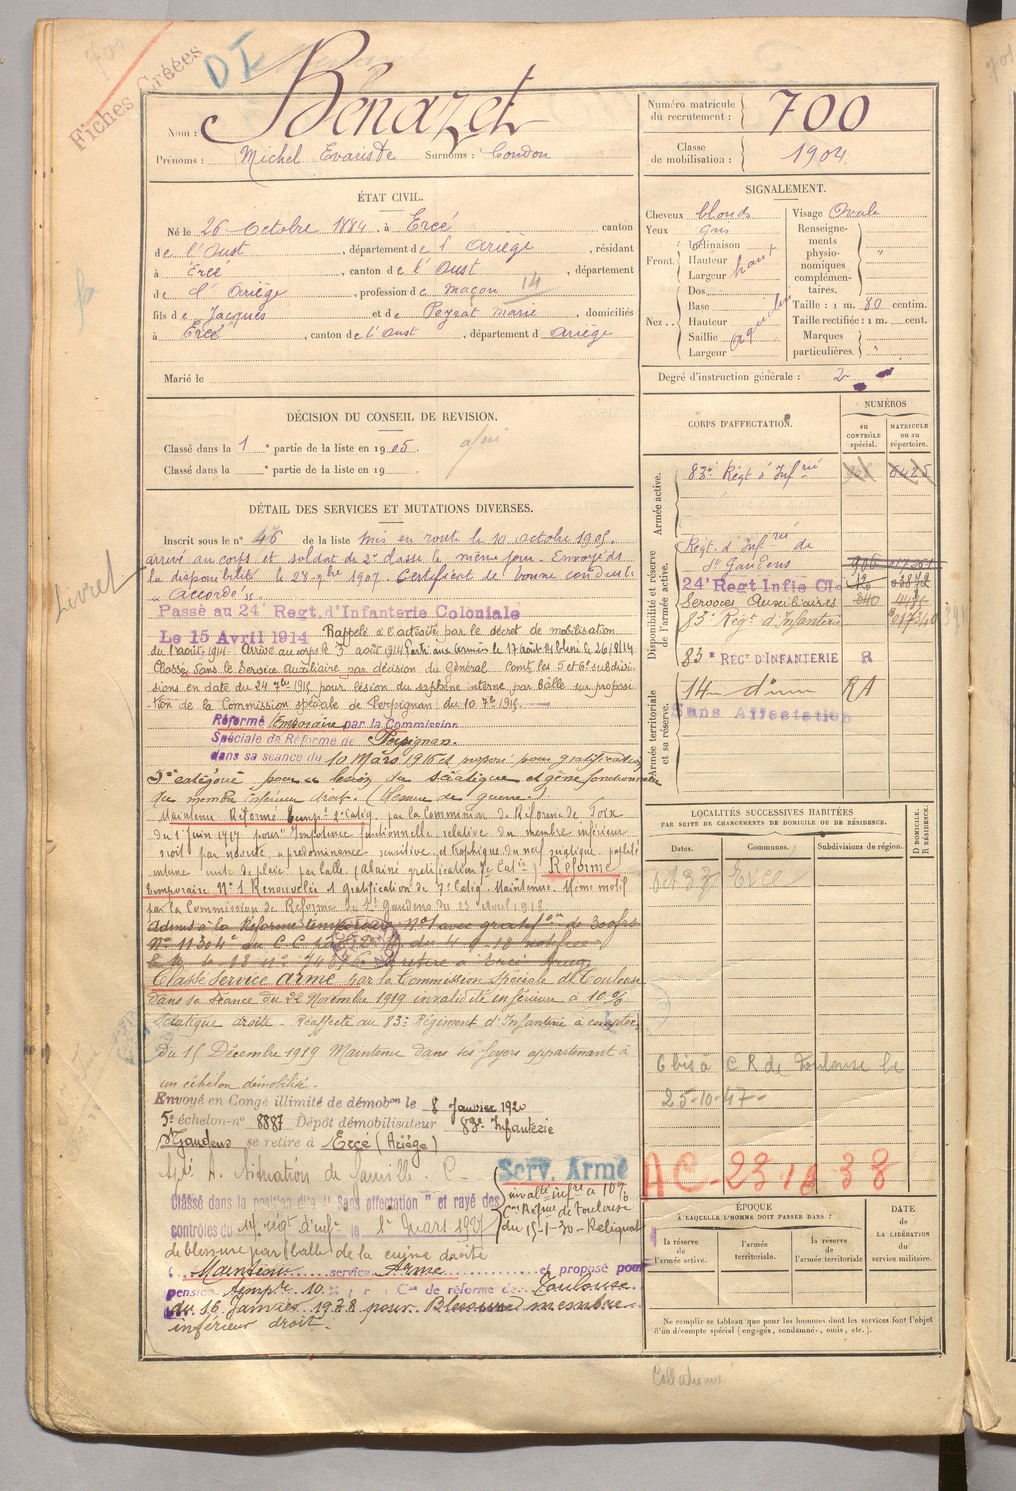 Fiches Créées
700
DI
Nom : Bénazet
Prénoms : Michel Evariste Surnoms : Coudou
Numéro matricule du recrutement : 700
Classe de mobilisation : 1904
ÉTAT CIVIL.
Né le 26 Octobre 1884, à Ercé canton
de l'Oust, département de l'Ariège, résidant
à Ercé, canton de l'Oust, département
de l'Ariège, profession de maçon 14
fils de Jacques et de Peyrat Marie, domiciliés
à Ercé, canton de l'Oust, département d'Ariège
Marié le
SIGNALEMENT.
Cheveux blonds
Yeux gris
Front. Inclinaison
Hauteur
Largeur haut
Nez. Dos
Base
Hauteur
Saillie
Largeur aquilin
Visage Ovale
Renseignements physionomiques complémentaires. "
Taille : 1 m. 80 centim.
Taille rectifiée : 1 m. cent.
Marques particulières. "
Degré d'instruction générale : 2
DÉCISION DU CONSEIL DE REVISION.
Classé dans la 1e partie de la liste en 1905.
Classé dans la e partie de la liste en 19
DÉTAIL DES SERVICES ET MUTATIONS DIVERSES.
Livret
Inscrit sous le n° 46 de la liste Mis en route le 10 octobre 1905.
arrivé au corps et soldat de 2e classe le même jour. Envoyé ds
la disponibilité le 28 7bre 1907. Certificat de bonne conduite
"Accordé".
Passé au 24e Regt. d'Infanterie Coloniale
Le 15 Avril 1914 Rappelé à l'activité par le décret de mobilisation
du 1 août 1914. Arrivé au corps le 3 août 1914 Parti aux armées le 17 Août
Classé dans le Service Auxiliaire par décision du Général Comt les 5 et 6e subdivi-
sions en date du 24 7bre 1915 pour lésion du saphène interne par balle sur proposi
-tion de la Commission spéciale de Perpignan du 10 7bre 1915
Réformé temporaire par la Commission
Spéciale de Réforme de Perpignan.
dans sa séance du 10 Mars 1916 et proposé pour gratification
5e catégorie pour lésion du sciatique et gêne fonctionnelle
du membre inférieur droit. (Blessure de guerre.)
Maintenu Réformé Temp. 2e Catég. par la Commission de Réforme de Foix
du 1 juin 1917 pour Impotence fonctionnelle relative du membre inférieur
droit par névrite, à prédominance sensitive et trophique du nerf sciatique poplité
interne suite de plaie par balle. Réforme
temporaire N° 1 Renouvelée et gratification de 7e Catég. Maintenue. Même motif
par la Commission de Réforme de St Gaudens du 23 avril 1918.
Admis à la Réforme temporaire N°1 avec gratifon
Classé Service armé par la Commission Spéciale de Toulouse
dans sa séance du 22 Novembre 1919 invalidité inférieure à 10 %
Sciatique droite. Réaffecté au 83e Régiment d'Infanterie à compter
du 15 Décembre 1919 Maintenu dans ses foyers appartenant à
un échelon démobilisé.
Envoyé en Congé illimité de démobon le 8 Janvier 1920
5e échelon n° 8887 Dépôt démobilisateur 83e Infanterie
St Gaudens se retire à Ercé (Ariège)
Situation de famille.
Serv. Armé
Classé dans la position dite "Sans affectation" et rayé des
contrôles du 14e régt d'infie le 1er Mars 1927
invalté infre à 10%
Con Réfme de Toulouse
du 15-1-30 - Reliquat
de blessure par balle de la cuisse droite
Maintenu service Armé et proposé pour
pension tempre 10 % par Con de réforme de Toulouse
du 16 Janvier 1928 pour Blessure membre
inférieur droit.
CORPS D'AFFECTATION.
NUMÉROS
au CONTRÔLE spécial.
MATRICULE ou au répertoire.
Armée active.
83e Régt d'Infrie 6425
Disponibilité et réserve de l'armée active.
Régt d'Infrie de St Gaudens 906
24e Regt Infie Cle 120 03872
Services Auxiliaires 340
83e Régt d'Infanterie
83e REGT D'INFANTERIE R
Armée territoriale et sa réserve.
14e d'inf RA
Sans Affectation
LOCALITÉS SUCCESSIVES HABITÉES
PAR SUITE DE CHANGEMENTS DE DOMICILE OU DE RÉSIDENCE.
Dates.
Communes.
Subdivisions de région.
D DOMICILE. R RÉSIDENCE.
Oct 33 Ercé
6 bis à C R de Toulouse le
25-10-47
AC-23 18 38
ÉPOQUE
À LAQUELLE L'HOMME DOIT PASSER DANS :
la réserve de l'armée active.
l'armée territoriale.
la réserve de l'armée territoriale
DATE de LA LIBÉRATION du service militaire.
Ne remplir ce tableau que pour les hommes dont les services font l'objet
d'un décompte spécial (engagés, condamnés, omis, etc.).
Collationné